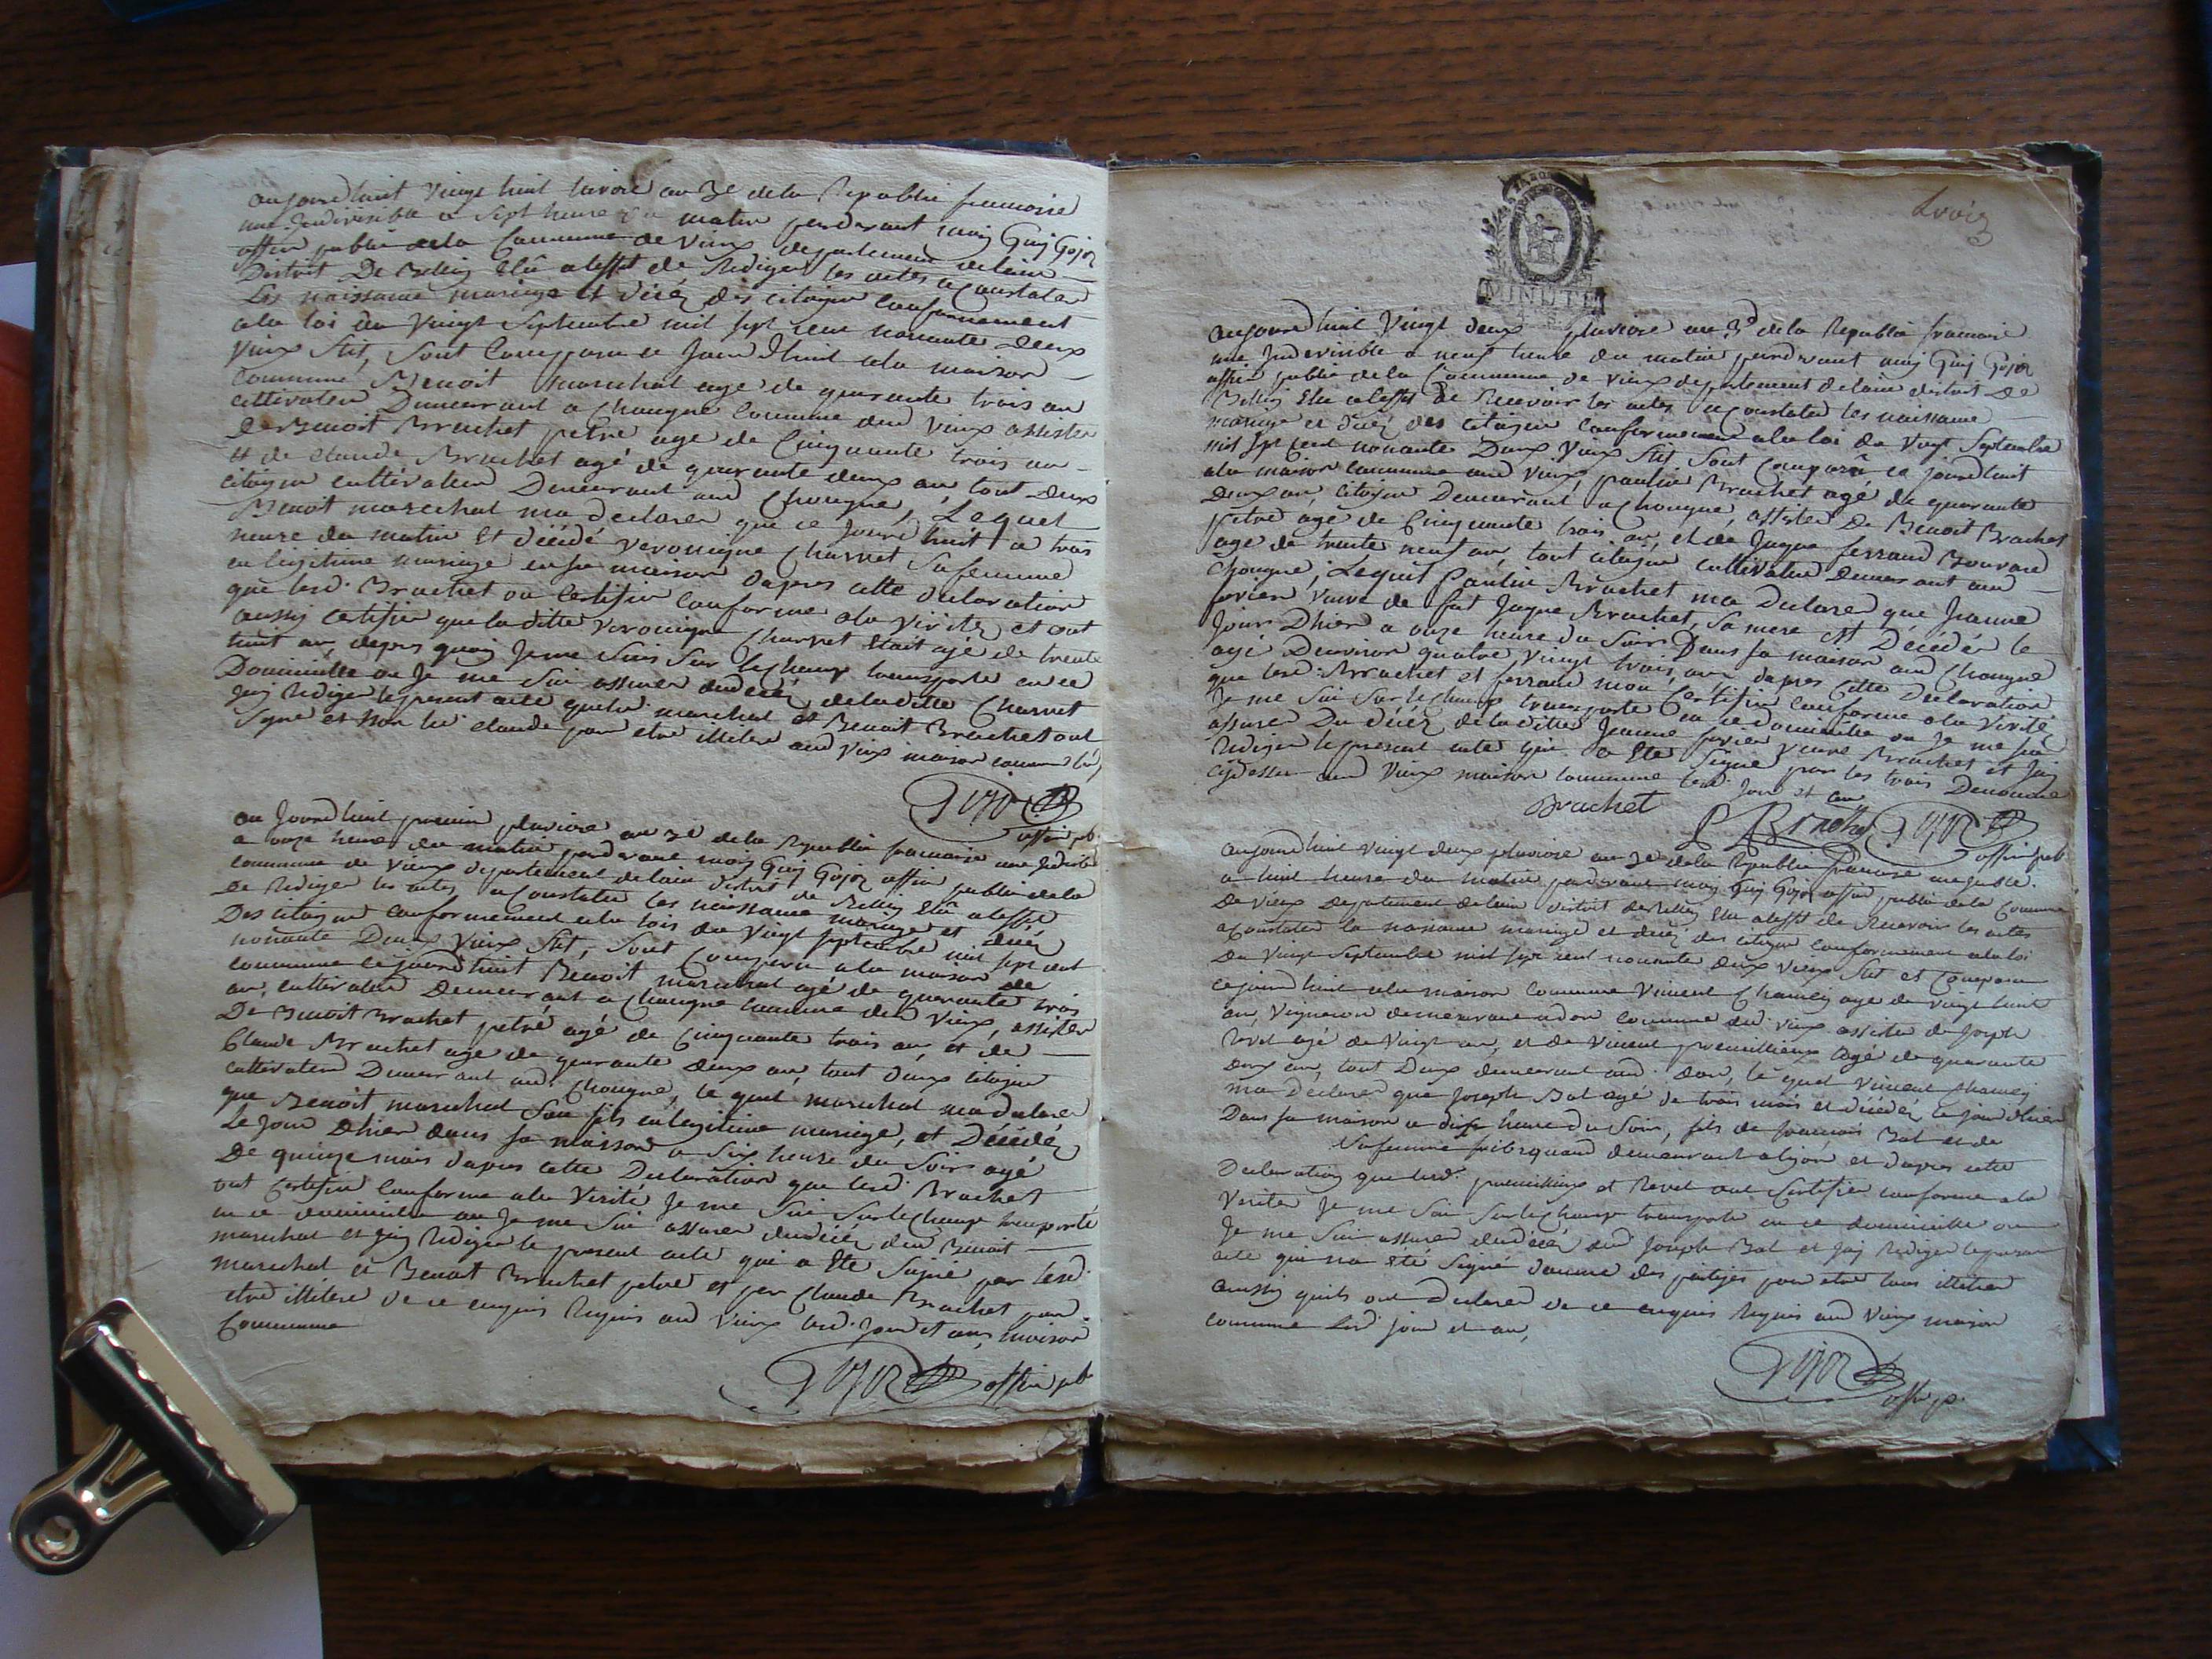 aujourdhuit vingt huit nivose an 3e de la Republic francoise
une Indivisible a sept heure du matin pardevant moy Guy Gojoz
officier public de la Commune de Vieux departement de lain
District De Belley Elû a leffet de Rediger les actes a Constater
Les naissance mariage et décéz des citoyen conformement
a la loi du Vingt Septembre mil sept cent nonante Deux
Vieux Stil, sont Comparu ce Jourd'huit a la maison
Commune, Benoit marechal age de quarante trois an
cultivateur Demeurant a Chongne Commune dud Vieux assister
De Benoit Brachet petre age de Cinquante trois an
et de claude Brachet agé de quarante deux an, tout deux
citoyen cultivateur Demeurant aud Chongne, Lequel
Benoit marechal ma declarer que ce Jourd'huit a trois
heure du matin Et décédé Veronique Charvet Sa femme
en legitime mariage en sa maison dapres cette declaration
que lesd. Brachet on Certifier Conforme a la Veritez et ont
aussy certifier que la ditte Veronique Charvet Etait agé de trente
huit an, depres quoy Je me suis sur le champ transporte en ce
Dominille ou Je me sui assurer dud décéz de la ditte Charvet
Jay Rediger le present acte que led. marechal et Benoit Brachet ont
Signe et Non led. claude pour etre illitere aud Vieux maison commune led
Gojoz
officier pub
au Jourdhuit premier pluviose an 3e de la Republic francoise une Indivisible
a onze heure du matin pardevant moy Guy Gojoz officier public de la
commune de Vieux departement de lain district de Belley Elû a leffet
De Rediger les actes a Constater les naissance mariage et décéz
Des citoyen conformement a la lois du Vingt septembre mil sept cent
nonante Deux Vieux Stil, sont Comparu a la maison de
commune ce jourdhuit Benoit marechal agé de quarante trois
an, cultivateur Demeurant a Chongne commune dud Vieux, assister
De Benoit Brachet petre agé de Cinquante trois an, et de
Claude Brachet age de quarante deux an, tout deux citoyen
cultivateur Demeurant aud. Chongne, le quel marechal ma declarer
que Benoit marechal Son fils en legitime mariage, et Décédéz
Le Jour Dhier dans sa maison a Six heure du Soir agé
De quinze mois dapres cette Declaration que lesd. Brachet
ont Certifier Conforme a la Verité Je me Sui Sur le champ transporté
en ce dominille ou Je me Sui assurer dud décéz dud Benoit
marechal et Jay Rediger le present acte qui a Ete Signé par lesd.
marechal et Benoit Brachet petre et par Claude Brachet pour
etre illitere de ce enquis Requis aud Vieux led. Jour et an, maison
Commune
Gojoz officier pub
trois
3
MINUTE
aujourdhuit Vingt deux pluviose an 3e de la Republic francoise
une Indivisible a neuf heure du matin pardevant moy Guy Gojoz
officier public de la Commune de Vieux departement de lain district De
Belley Elu a leffet De Recevoir les actes a Constater les naissance
mariage et Décéz des citoyen conformement a la loi du Vingt Septembre
mil sept cent nonante Deux Vieux Stil sont Comparû ce jourdhuit
a la maison commune aud Vieux, paulin Brachet agé de quarante
Deux an, citoyen Demeurant a Chongne, assister De Benoit Brachet
petre agé de Cinquante trois an, et de Jaque ferrand Bouvard
age de trente neuf an, tout citoyen cultivateur Demeurant aud
Chongne, Lequel Paulin Brachet ma Declarer que Jeanne
veuve de fut Jaque Brachet, Sa mere Et Décédér le
Jour Dhier a onze heure du Soir Dans sa maison aud Chongne
agé Denviron quatre Vingt trois, an, dapres Cette Declaration
que lesd. Brachet et ferrand mon Certifier Conforme a la Verité,
Je me Sui Sur le champ transporte en ce dominille ou Je me sui
assurer Du décéz de la ditte Jeanne veuve Brachet et Jay
Rediger le present acte qui a Ete Signe par les trois Denomme
cy dessu aud Vieux maison commune led. Jour et an
Brachet P Brachet Gojoz
officier pub
aujourdhuit vingt deux pluviose an 3e de la Republic francoise une Indiv.
a huit heure du matin pardevant moy Guy Gojoz officier public de la Commune
De Vieux Departement de lain district de Belley Elu a leffet de Recevoir les actes
a Constater la naissance mariage et décéz des citoyen conformement a la loi
Du Vingt Septembre mil sept cent nonante deux Vieux Stil et Comparu
ce jourdhuit a la maison commune Vincent Chamei age de vingt huit
an, Vigneron demeurant a don commune dud. vieux assister de Joseph
Revel agé de Vingt an, et de Vincent agé de quarante
deux an, tout Deux demeurant aud. don, le quel Vincent Chamei
ma Declarer que Joseph Bal agé de trois mois et décédéz le Jour dhier
Dans sa maison a dix heure Du Soir, fils de francois Bal et de
Sa femme demeurant a lyon, et dapres cette
Declaration que lesd. et Revel ont Certifier conforme a la
Verité Je me Sui Sur le champ transporte en ce dominille ou
Je me Sui assurer dud décéz dud Joseph Bal et Jay Rediger le present
acte qui na Eté Signé daucune des partyes pour etre tous illitere
aussy quils ont Declarer de ce enquis Requis aud Vieux maison
commune led. jour et an,
Gojoz
offi. p.